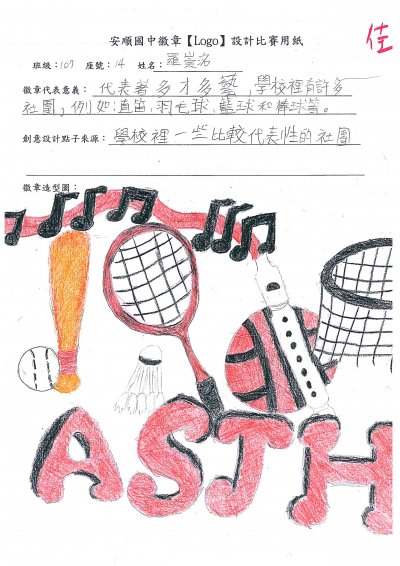 安順國中徽章【Logo】設計比賽用紙
佳
班級：107 座號：14 姓名：羅崇洺
徽章代表意義：代表著多才多藝，學校裡有許多
社團，例如：直笛、羽毛球、籃球和棒球等。
創意設計點子來源：學校裡一些比較代表性的社團
徽章造型圖：
ASJH